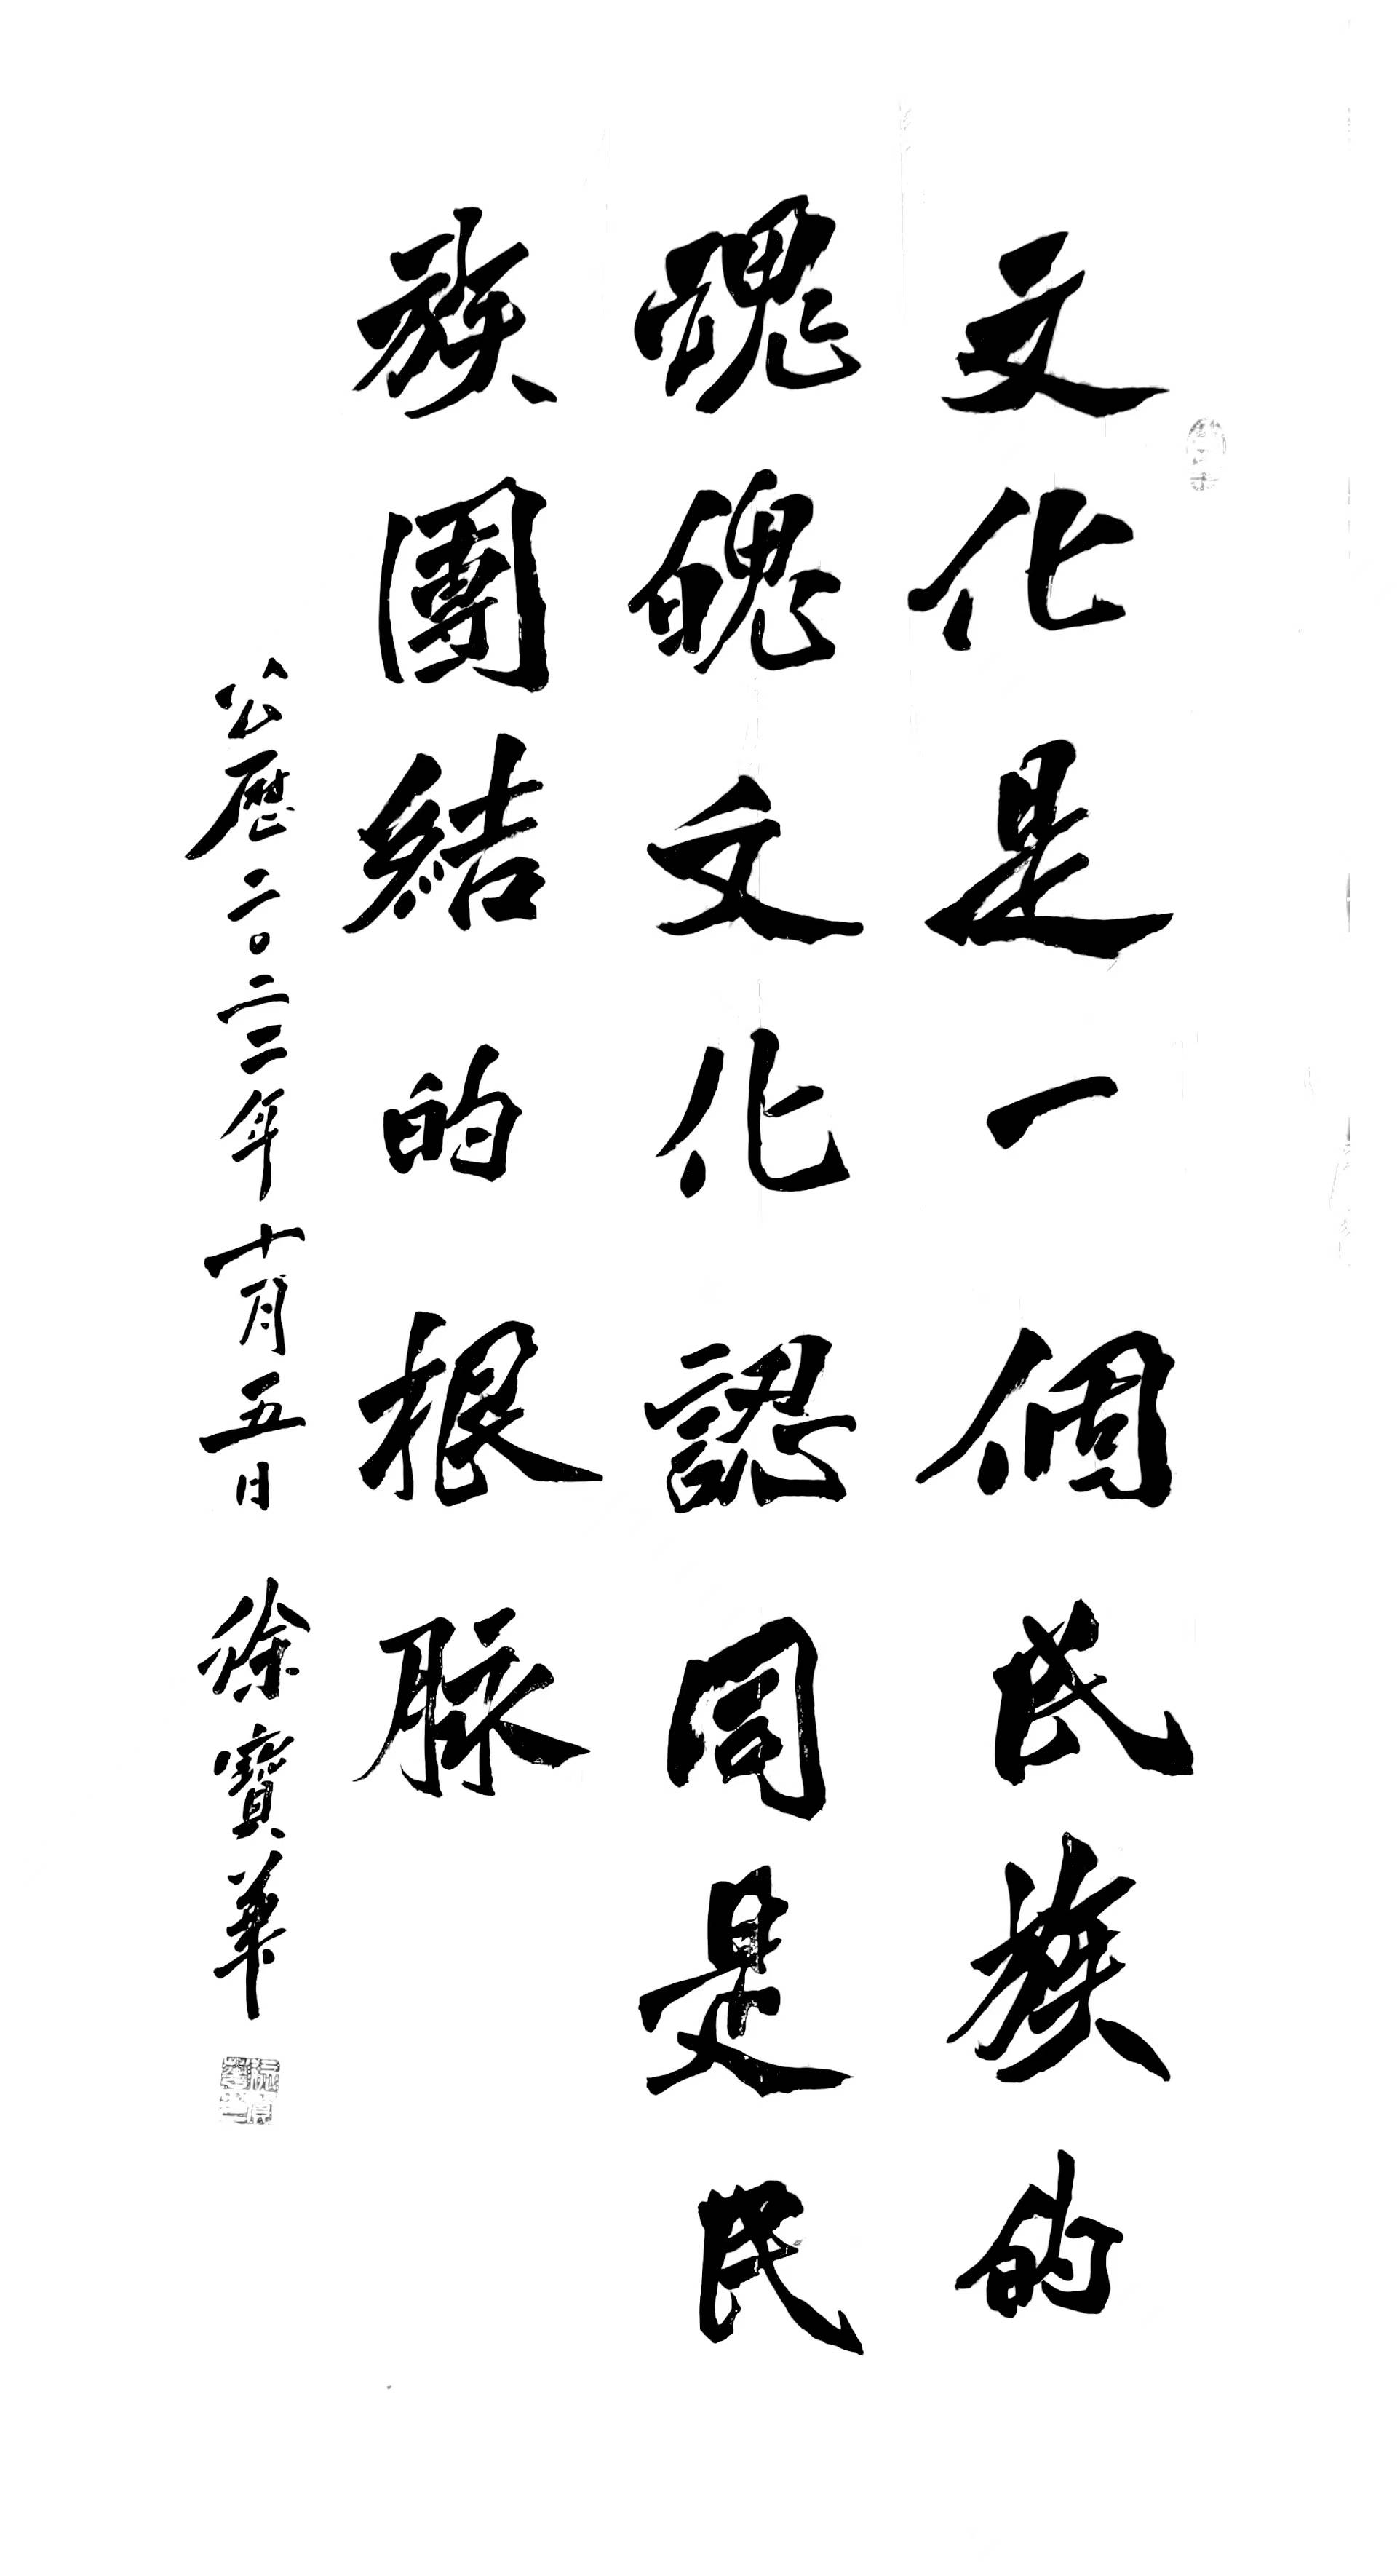 文化是一個民族的
魂魄文化認同是民
族團結的根脉
公歷二〇二三年十月五日 徐寶華